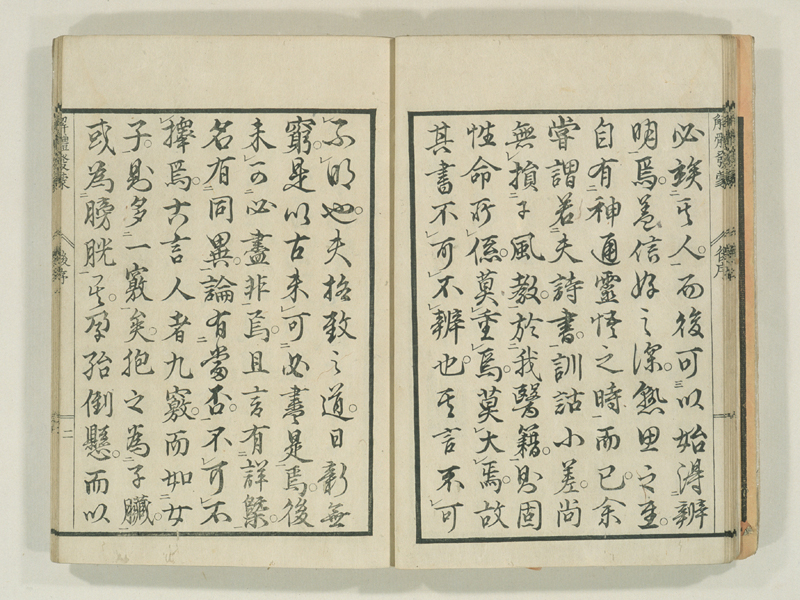 必竢其人而後可以始得辨
明焉蓋信好之深熟思之至
自有神通靈悟之時而已余
嘗謂若夫詩書訓詁小差尚
無損于風教於我醫籍則固
性命所係莫重焉莫大焉故
其書不可不辨也其言不可
不明也夫格致之道日新無
窮是以古未可必盡是焉後
未可必盡非焉且言有詳槩
名有同異論有當否不可不
擇焉古言人者九竅而如女
子則多一竅矣抱之為子臟
或為膀胱其孕殆倒懸而以
解體發蒙
後序
二